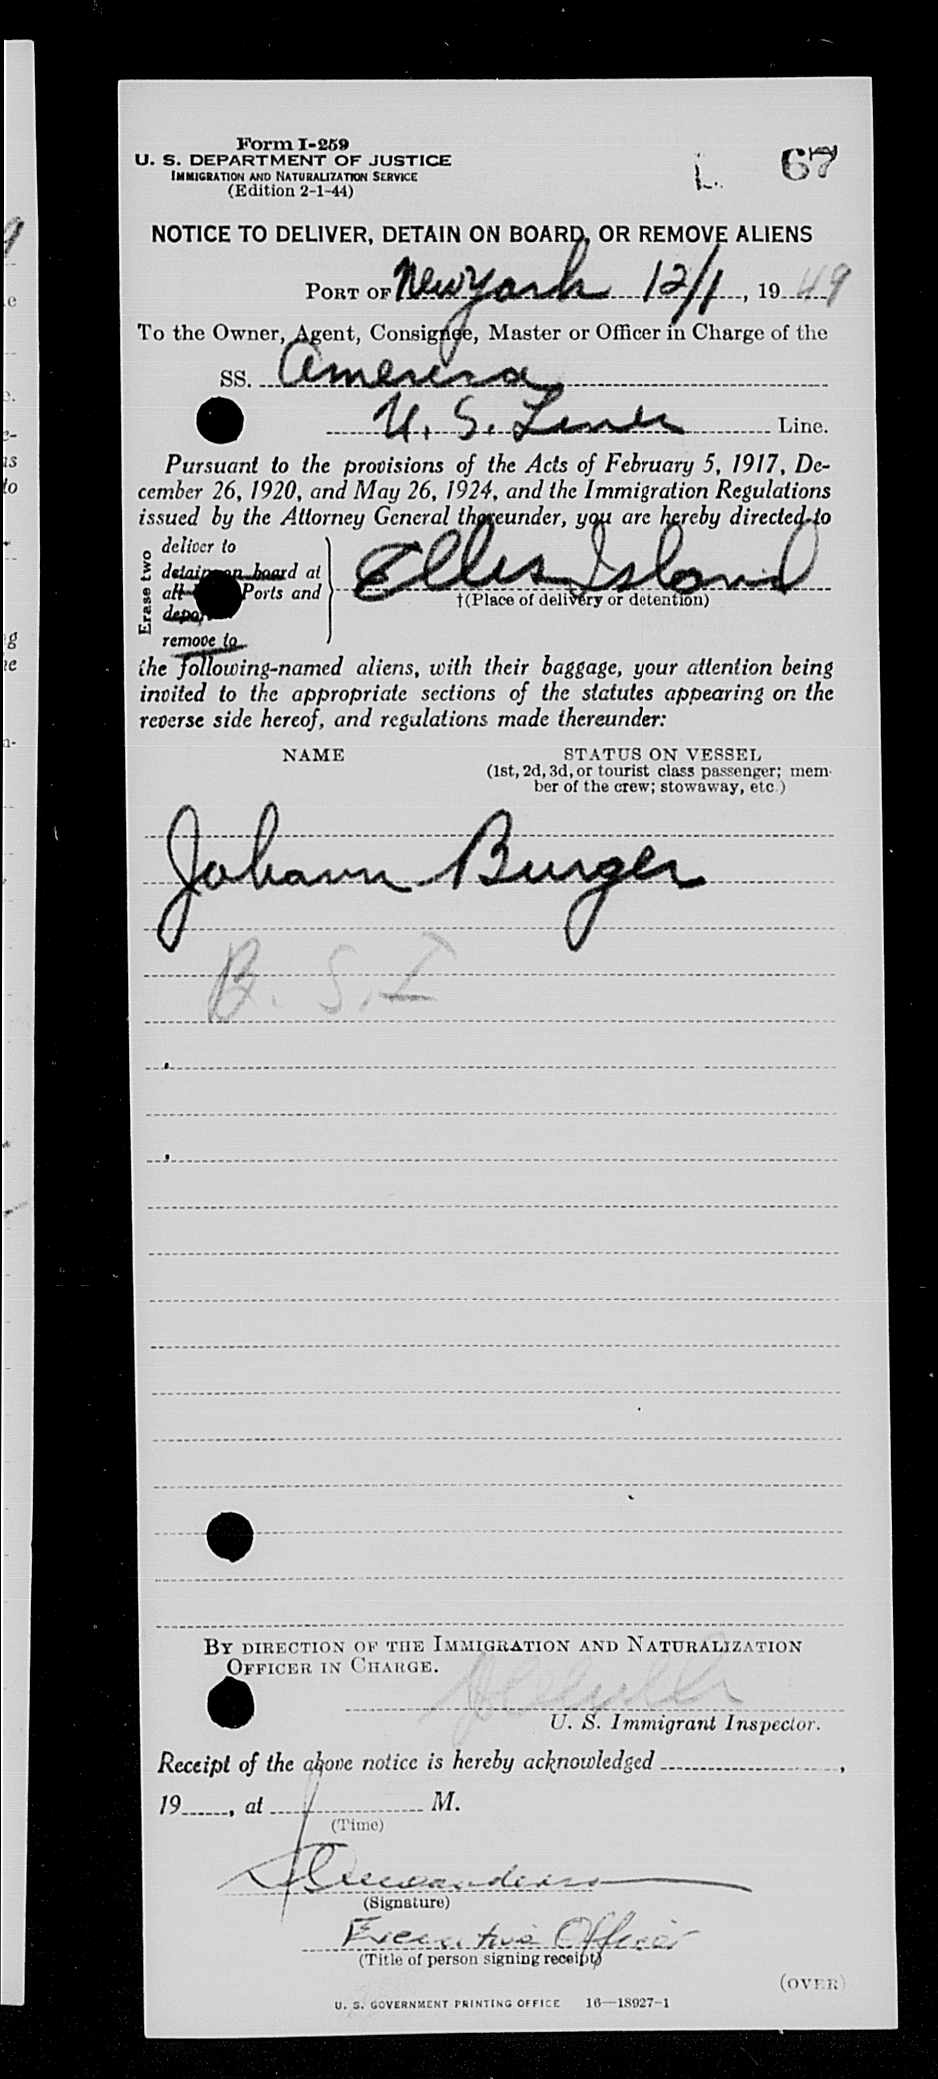 Form I-259
U. S. DEPARTMENT OF JUSTICE
IMMIGRATION AND NATURALIZATION SERVICE
(Edition 2-1-44)
L. 67
NOTICE TO DELIVER, DETAIN ON BOARD, OR REMOVE ALIENS
PORT OF New York 12/1, 1949
To the Owner, Agent, Consignee, Master or Officer in Charge of the
SS. America
U. S. Lines Line.
Pursuant to the provisions of the Acts of February 5, 1917, De-
cember 26, 1920, and May 26, 1924, and the Immigration Regulations
issued by the Attorney General thereunder, you are hereby directed to
Erase two
deliver to
detain on board at
all Ports and
remove to
Ellis Island
†(Place of delivery or detention)
the following-named aliens, with their baggage, your attention being
invited to the appropriate sections of the statutes appearing on the
reverse side hereof, and regulations made thereunder:
NAME STATUS ON VESSEL
(1st, 2d, 3d, or tourist class passenger; mem-
ber of the crew; stowaway, etc.)
Johann Burger
B. S. I
BY DIRECTION OF THE IMMIGRATION AND NATURALIZATION
OFFICER IN CHARGE.
U. S. Immigrant Inspector.
Receipt of the above notice is hereby acknowledged ,
19 , at M.
(Time)
(Signature)
Executive Officer
(Title of person signing receipt)
(OVER)
U. S. GOVERNMENT PRINTING OFFICE 16—18927-1